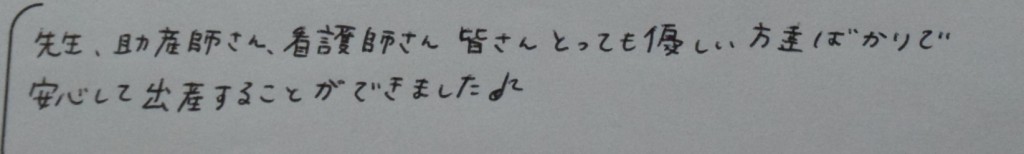 先生、助産師さん、看護師さん 皆さんとっても優しい方達ばかりで
安心して出産することができました♪